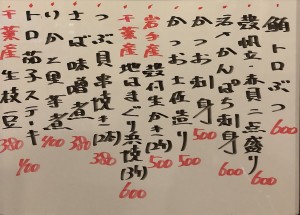 鮪トロぶつ 600
殻帆立赤貝二点盛り 600
活〆かんぱち刺身 600
かつお刺身 500
かつお土佐造り 500
岩手産 殻付生かき(2ケ) 500
千葉産 地はまぐり浜焼(3ケ) 600
つぶ貝串焼き(2本) 380
さば味噌煮 380
いかと里芋煮 400
トロ茄子ステーキ 400
千葉産 生枝豆 380